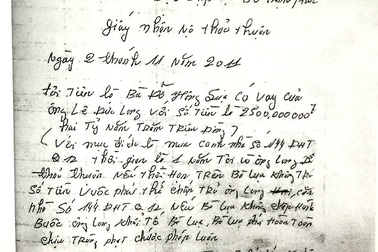 Giấy nhận nợ thỏa thuận
Ngày 2 tháng 11 năm 2011
Tôi tên là Bà Đỗ Hồng có vay của
ông Lê Đức Long với số tiền là 2500.000.000đ
Hai Tỷ Năm Trăm Triệu Đồng
với mục đích là mua căn nhà số 144 ĐHT
Q 12 thời gian là 1 năm Tôi và ông Long
thỏa thuận nếu thời hạn trên Bà không trả
số tiền phải thế chấp trả ông Long căn
nhà số 144 ĐHT Q 12 nếu Bà không chấp hành
Buộc ông Long khởi tố Bà, Bà phải hoàn toàn
chịu trước pháp luật.